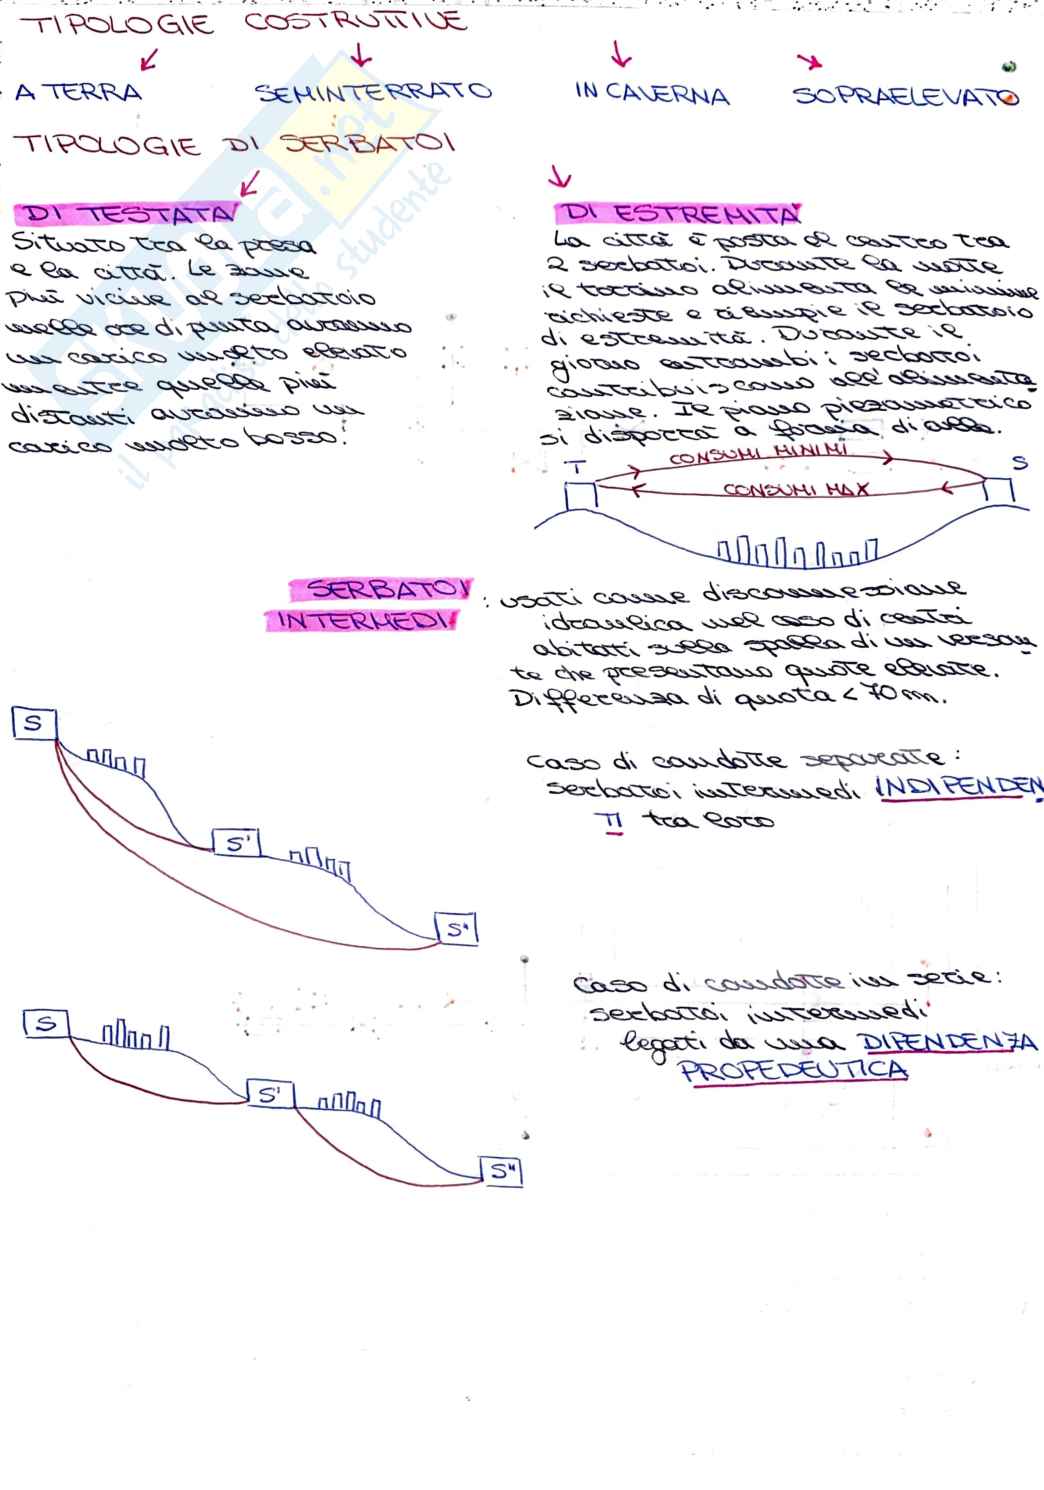 TIPOLOGIE COSTRUTTIVE
A TERRA SEMINTERRATO IN CAVERNA SOPRAELEVATO
TIPOLOGIE DI SERBATOI
DI TESTATA
Situato tra la presa
e la città. Le zone
più vicine al serbatoio
nelle ore di punta avranno
un carico molto elevato
mentre quelle più
distanti avranno un
carico molto basso.
DI ESTREMITÀ
La città è posta al centro tra
2 serbatoi. Durante la notte
il torrino alimenta le minime
richieste e riempie il serbatoio
di estremità. Durante il
giorno entrambi i serbatoi
contribuiscono all'alimenta
zione. Il piano piezometrico
si disporrà a forma di valle.
T CONSUMI MINIMI S
CONSUMI MAX
SERBATOI
INTERMEDI
: usati come disconnessione
idraulica nel caso di centri
abitati sulla spalla di un versan
te che presentano quote elevate.
Differenza di quota < 70 m.
S
S'
S"
caso di condotte separate:
serbatoi intermedi INDIPENDEN
TI tra loro
S
S'
S"
caso di condotte in serie:
serbatoi intermedi
legati da una DIPENDENZA
PROPEDEUTICA
skuola.net
il paradiso dello studente